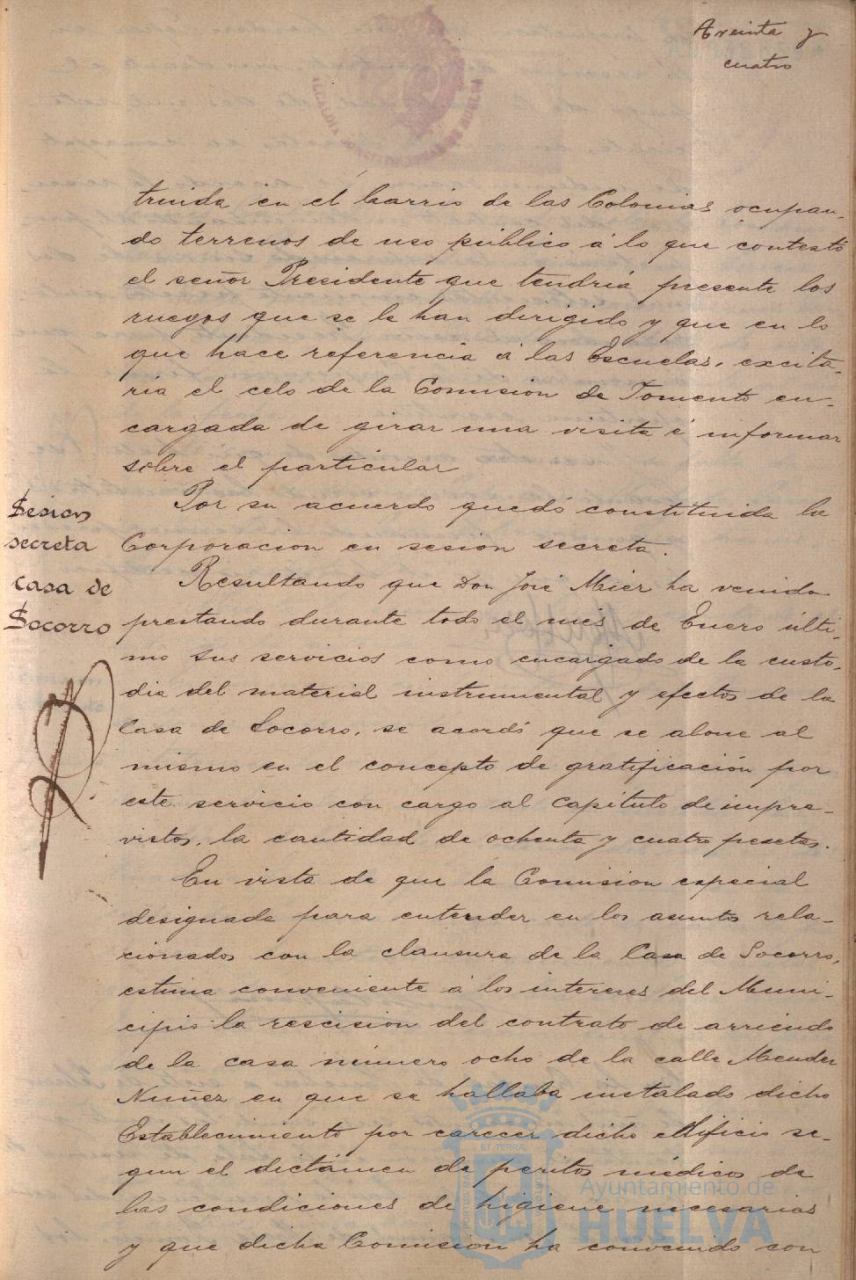 treinta y
cuatro
truida en el barrio de las Colonias ocupan-
do terrenos de uso público á lo que contestó
el señor Presidente que tendria presente los
ruegos que se le han dirigido y que en lo
que hace referencia á las Escuelas, excita-
ria el celo de la Comision de Fomento en-
cargada de girar una visita é informar
sobre el particular
Por su acuerdo quedó constituida la
Corporacion en sesion secreta.
Sesion
secreta
casa de
Socorro
Resultando que Don José Mier ha venido
prestando durante todo el mes de Enero últi-
mo sus servicios como encargado de la custo-
dia del material instrumental y efectos de la
Casa de Socorro, se acordó que se abone al
mismo en el concepto de gratificación por
este servicio con cargo al capitulo de impre-
vistos, la cantidad de ochenta y cuatro pesetas.
En vista de que la Comision especial
designada para entender en los asuntos rela-
cionados con la clausura de la Casa de Socorro,
estima conveniente á los intereses del Muni-
cipio la rescision del contrato de arriendo
de la casa número ocho de la calle Mendez
Nuñez en que se hallaba instalado dicho
Establecimiento por carecer dicho edificio se-
gun el dictámen de peritos médicos de
las condiciones de higiene necesarias
y que dicha Comision ha convenido con
Ayuntamiento de
HUELVA